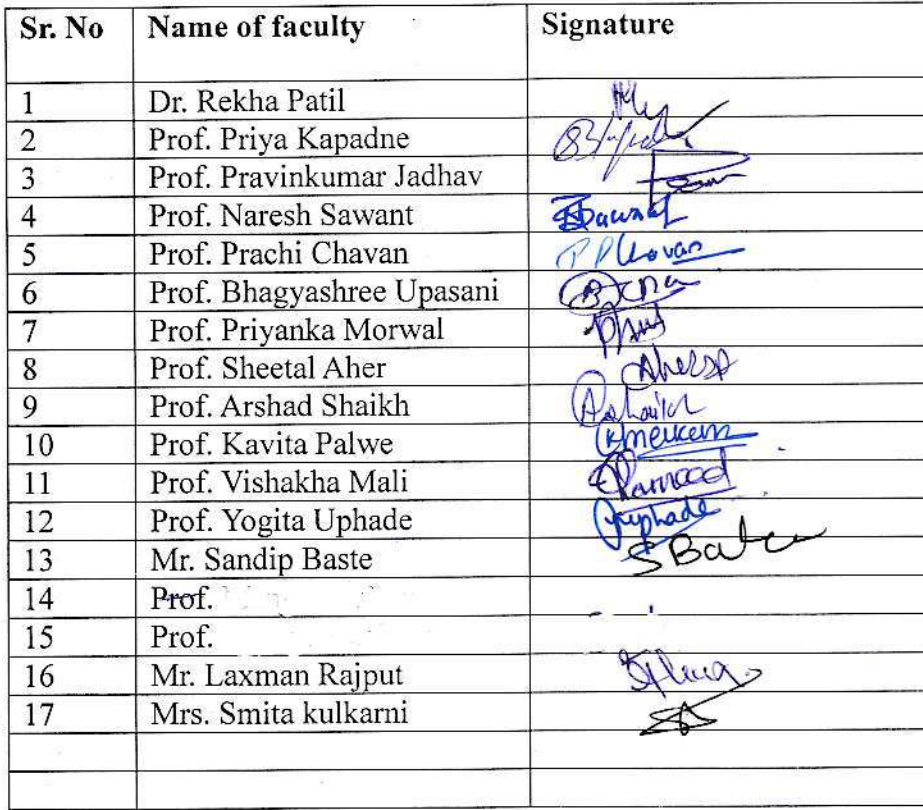 Sr. No Name of faculty Signature
1 Dr. Rekha Patil
2 Prof. Priya Kapadne
3 Prof. Pravinkumar Jadhav
4 Prof. Naresh Sawant
5 Prof. Prachi Chavan PPChavan
6 Prof. Bhagyashree Upasani
7 Prof. Priyanka Morwal
8 Prof. Sheetal Aher
9 Prof. Arshad Shaikh
10 Prof. Kavita Palwe
11 Prof. Vishakha Mali
12 Prof. Yogita Uphade
13 Mr. Sandip Baste
14 Prof.
15 Prof.
16 Mr. Laxman Rajput
17 Mrs. Smita kulkarni